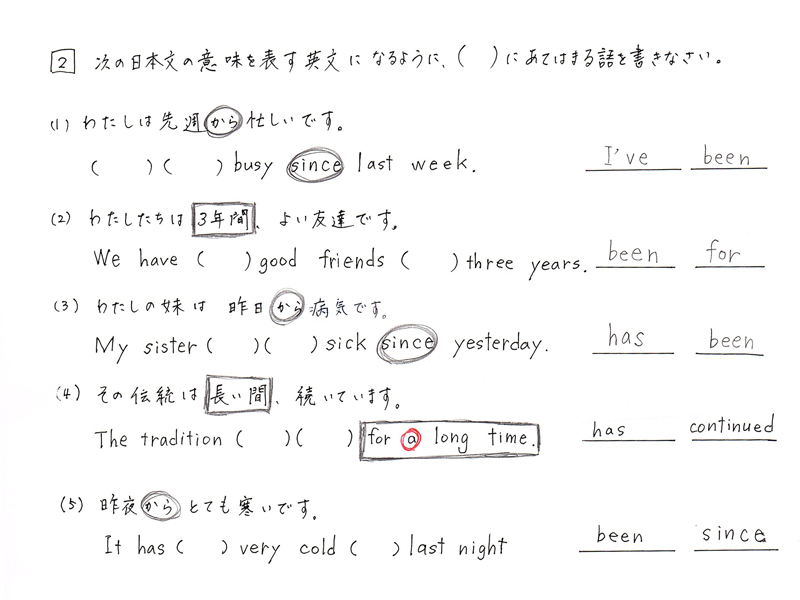 2 次の日本文の意味を表す英文になるように、( )にあてはまる語を書きなさい。
(1) わたしは先週から忙しいです。
( ) ( ) busy since last week. I've been
(2) わたしたちは3年間、よい友達です。
We have ( ) good friends ( ) three years. been for
(3) わたしの妹は 昨日から病気です。
My sister ( )( ) sick since yesterday. has been
(4) その伝統は長い間、続いています。
The tradition ( )( ) for a long time. has continued
(5) 昨夜からとても寒いです。
It has ( ) very cold ( ) last night been since